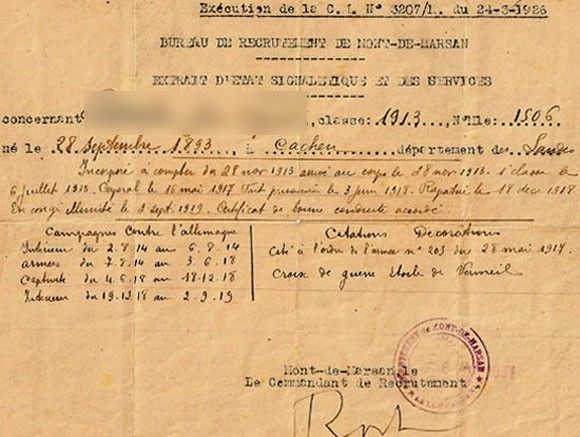 Exécution de la C.M. N° 3207/1. du 24-3-1926
BUREAU DE RECRUTEMENT DE MONT-DE-MARSAN
EXTRAIT D'ETAT SIGNALETIQUE ET DES SERVICES
concernant , classe: 1913, N°Mle: 1506
né le 28 Septembre 1893, à Cachen département des Landes
Incorporé à compter du 28 nov 1913 arrivé au corps le 28 nov 1913. 1° classe le
6 juillet 1915. Caporal le 16 mai 1917 Fait prisonnier le 3 juin 1918. Rapatrié le 18 dec 1918
En congé illimité le 2 sept 1919. Certificat de bonne conduite accordé
Campagnes Contre l'allemagne
Intérieur du 2.8.14 au 6.8.14
armées du 7.8.14 au 3.6.18
Captivité du 4.6.18 au 18.12.18
Intérieur du 19.12.18 au 2.9.19
Citations Décorations
Cité à l'ordre de l'armée n° 203 du 28 mai 1917
Croix de guerre étoile de Vermeil
Mont-de-Marsan le
Le Commandant de Recrutement
DE MONT-DE-MARSAN